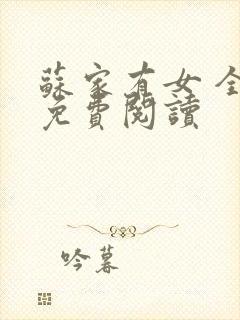 蘇家有女 全
免費閱讀
吟暮